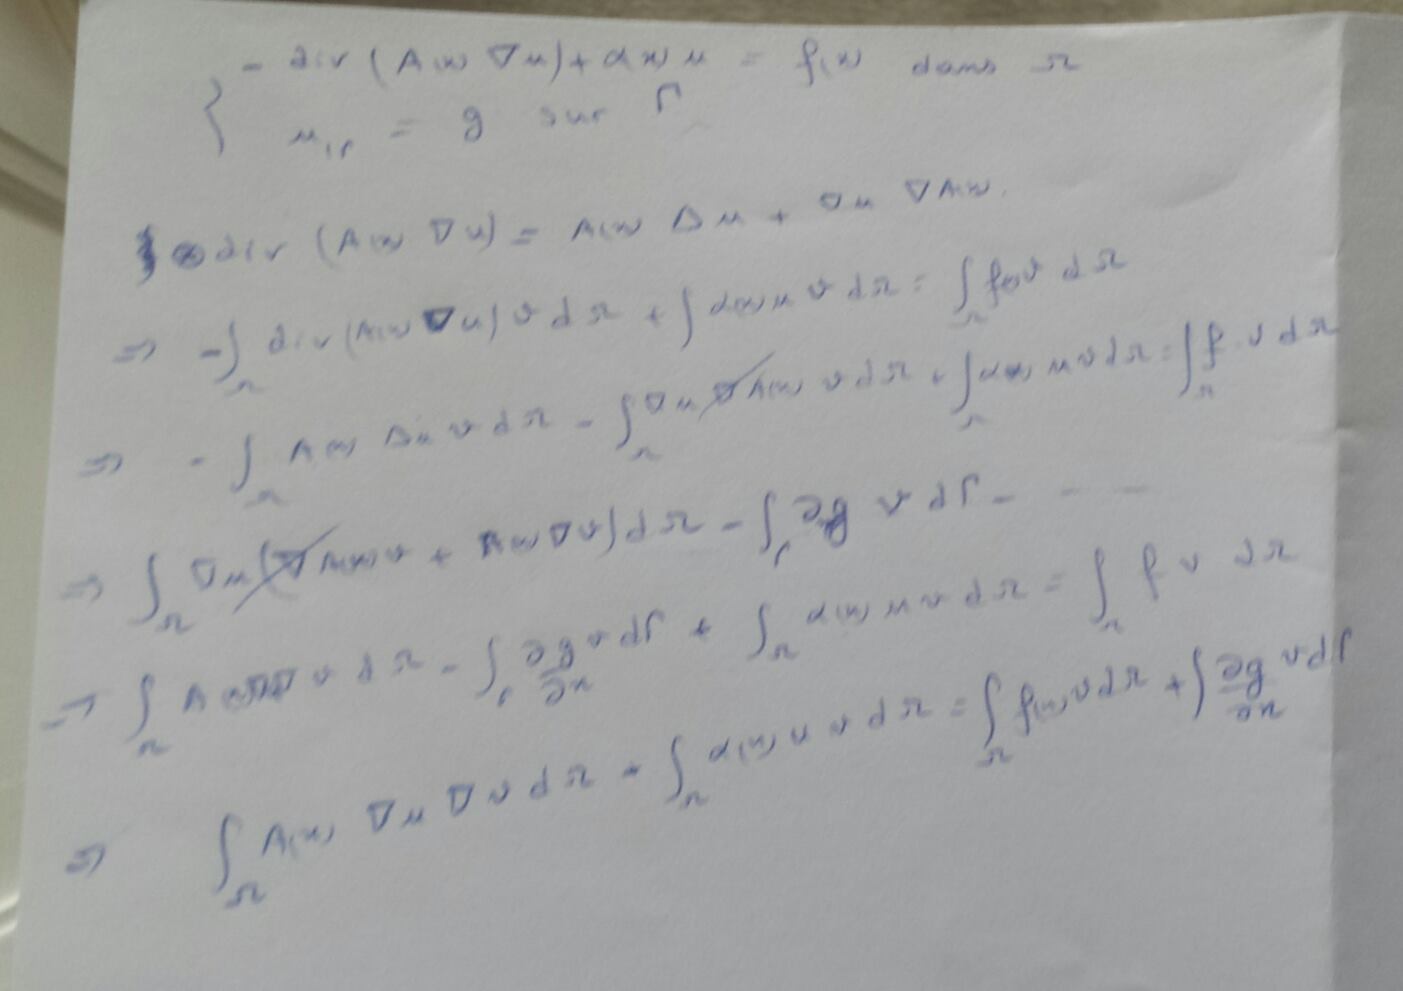 { - div (A(x) ∇u) + α(x) u = f(x) dans Ω
u|Γ = g sur Γ
div (A(x) ∇u) = A(x) Δu + ∇u ∇A(x).
⇒ -∫Ω div(A(x) ∇u) v dΩ + ∫ α(x) u v dΩ = ∫Ω f(x) v dΩ
⇒ -∫Ω A(x) Δu v dΩ - ∫Ω ∇u ∇A(x) v dΩ + ∫Ω α(x) u v dΩ = ∫Ω f v dΩ
⇒ ∫Ω ∇u (∇A(x) v + A(x) ∇v) dΩ - ∫Γ ∂g v dΓ - - - -
⇒ ∫Ω A(x) ∇ v dΩ - ∫Γ ∂g/∂n v dΓ + ∫Ω α(x) u v dΩ = ∫Ω f v dΩ
⇒ ∫Ω A(x) ∇u ∇v dΩ + ∫Ω α(x) u v dΩ = ∫Ω f(x) v dΩ + ∫ ∂g/∂n v dΓ